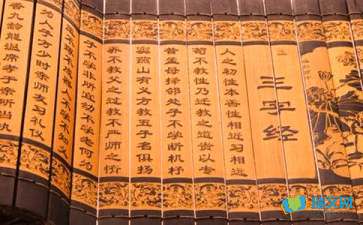 三字经
人之初性本善性相近习相远
苟不教性乃迁教之道贵以专
昔孟母择邻处子不学断机杼
窦燕山有义方教五子名俱扬
养不教父之过教不严师之惰
子不学非所宜幼不学老何为
玉不琢不成器人不学不知义
为人子方少时亲师友习礼仪
香九龄能温席孝于亲所当执
瑞文网